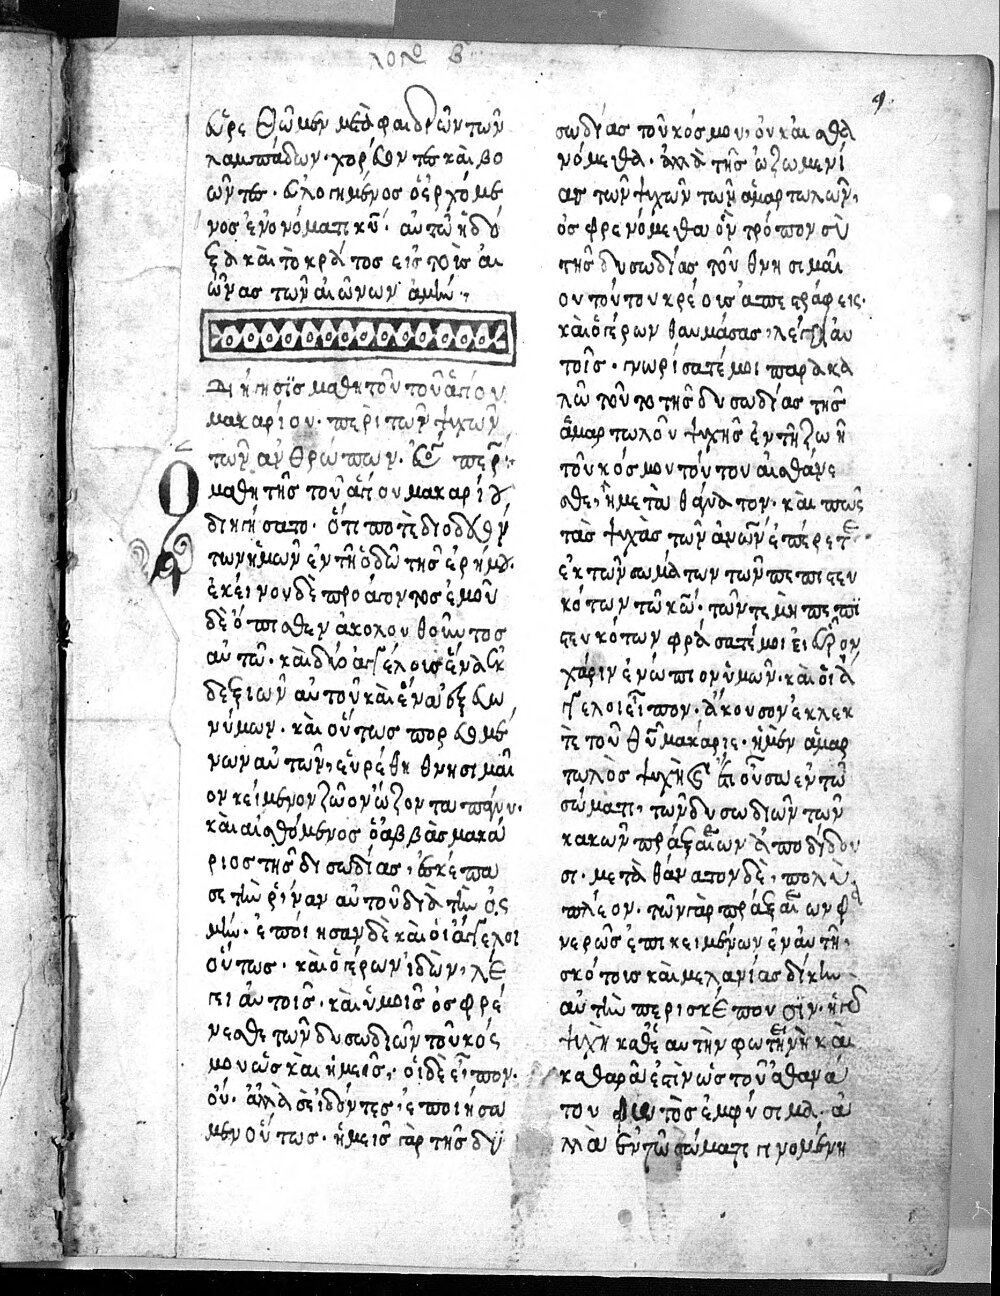 λογ β
9
εὕρεθῶμεν μετὰ φαιδρῶν τῶν
λαμπάδων· χορεύοντες καὶ βο
ῶντες· εὐλογημένος ὁ ἐρχόμε
νος ἐν ὀνόματι κυ· αὐτῶ ἡ δό
ξα καὶ τὸ κράτος εἰς τοὺς αἰ
ῶνας τῶν αἰώνων ἀμήν·
Διήγησϊς μαθητοῦ τοῦ ἁγίου
μακαρίου· περὶ τῶν ψυχῶν
τῶν ἀνθρώπων·
Ὁ
μαθητὴς τοῦ ἁγίου μακαρίου
διηγήσατο· ὅτι ποτὲ διοδεύον
των ἡμῶν ἐν τῆ ὁδῶ τῆς ἐρήμου·
ἐκείνου δὲ προάγοντος ἐμοῦ
δὲ ὄπισθεν ἀκολουθοῦντος
αὐτῶ· καὶ δύο ἀγγέλοις ἕνα ἐκ
δεξιῶν αὐτοῦ καὶ ἕνα ἐξ εὐω
νύμων· καὶ οὕτως πορευομέ
νων αὐτῶν, εὑρέθη θνησιμαῖ
ον κείμενον ζῶον ὄζοντα πάνυ·
καὶ αἰσθόμενος ὁ ἀββᾶς μακά
ριος τῆς δισωδίας, ἐσκέπα
σε τὴν ῥίναν αὐτοῦ διὰ τὴν ὀσ
μήν· ἐποίησαν δὲ καὶ οἱ ἄγγελοι
οὕτως· καὶ ὁ γέρων ἰδὼν, λέ
γει αὐτοῖς· καὶ ὑμοῖς ὀσφρέ
νεσθε τῶν δυσωδιῶν τοῦ κόσ
μου ὡς καὶ ἡμεῖς, οἱ δὲ εἶπον·
οὐ· ἀλλὰ σὲ ἰδόντες, ἐποιήσα
μεν οὕτως· ἡμεῖς γὰρ τῆς δυ
σωδίας τοῦ κόσμου, οὐκ αἰσθα
νόμεθα· ἀλλὰ τῆς ὠζωμενί
ας τῶν ψυχῶν τῶν ἁμαρτωλῶν,
ὀσφρενόμεθα ὃν τρόπον σὺ
τῆς δυσωδίας τοῦ θνησιμαῖ
ου τούτου κρέοις ἀπεστράφεις·
καὶ ὁ γέρων θαυμάσας, λέγει αὐ
τοῖς· γνωρίσατέ μοι παρακα
λῶ τοῦτο τῆς δυσωδίας τῆς
ἁμαρτωλοῦ ψυχῆς ἐν τῆ ζωῆ
τοῦ κόσμου τούτου αἰσθάνε
σθε, ἢ μετὰ θάνατον· καὶ πῶς
τὰς ψυχὰς τῶν ἀνων ἐπέρετε
ἐκ τῶν σωμάτων τῶν πεπιστευ
κότων τῶ κω· τῶν τε μὴ πεπι
στευκότων φράσατέ μοι εἰ εὗρον
χάριν ἐνώπιον ὑμῶν· καὶ οἱ ἄ
γγελοι εἶπον· ἄκουσον ἐκλεκ
τὲ τοῦ θυ μακάριε· ἡ μὲν ἁμαρ
τωλὸς ψυχὴ ἔτι οὖσα ἐν τῶ
σώματι, τῶν δυσωδιῶν τῶν
κακῶν πράξαιων ἀποδίδου
σι· μετὰ θάνατον δὲ, πολὺ
πλέον· τῶν γὰρ πράξαιων φα
νερῶς ἐπικειμένων ἐν αὐτῆ,
σκότοις καὶ μελανίας δίκην
αὐτὴν περισκέπουσϊν· ἡ δὲ
ψυχὴ καθεαυτὴν φωτεινὴ καὶ
καθαρὰ ἐστὶν ὡς τοῦ ἀθανά
του φωτὸς ἐμφύσιμα· ἀ
λλὰ ἐν τῶ σώματι γινομένη